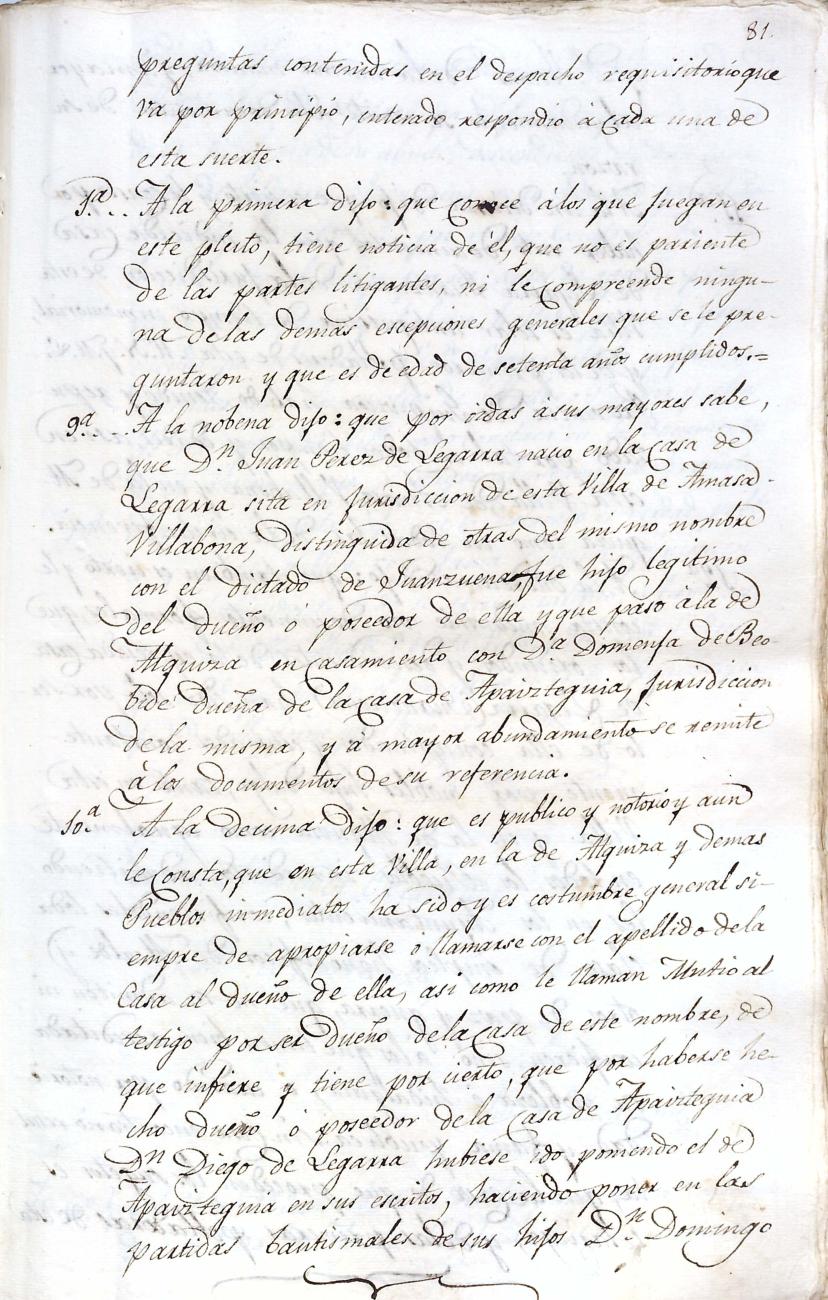 81.
preguntas contenidas en el despacho requisitorio que
va por principio, enterado respondio à cada una de
esta suerte.
1ª.. A la primera dijo: que conoce à los que juegan en
este pleito, tiene noticia de èl, que no es pariente
de las partes litigantes, ni le compreende ningu-
na de las demas escepciones generales que se le pre-
guntaron y que es de edad de setenta años cumplidos.=
9ª... A la nobena dijo: que por oidas à sus mayores sabe,
que Dn. Juan Perez de Legarra nacio en la Casa de
Legarra sita en Jurisdiccion de esta Villa de Amasa-
Villabona, distinguida de otras del mismo nombre
con el dictado de Juanzuena, fue hijo legitimo
del dueño ó poseedor de ella y que pasó à la de
Alquiza en Casamiento con Dª. Domenja de Beo-
bide dueña de la Casa de Apaizteguia, Jurisdiccion
de la misma, y à mayor abundamiento se remite
à los documentos de su referencia.
10ª A la decima dijo: que es publico y notorio y aun
le Consta, que en esta Villa, en la de Alquiza y demas
Pueblos inmediatos ha sido y es costumbre general si-
empre de apropiarse ó llamarse con el apellido de la
Casa al dueño de ella, asi como le llaman Mutio al
testigo por ser dueño de la Casa de este nombre, de
que infiere y tiene por cierto, que por haberse he-
cho dueño ó poseedor de la Casa de Apaizteguia
Dn. Diego de Legarra hubiese ido poniendo el de
Apaizteguia en sus escritos, haciendo poner en las
partidas bautismales de sus hijos Dn. Domingo